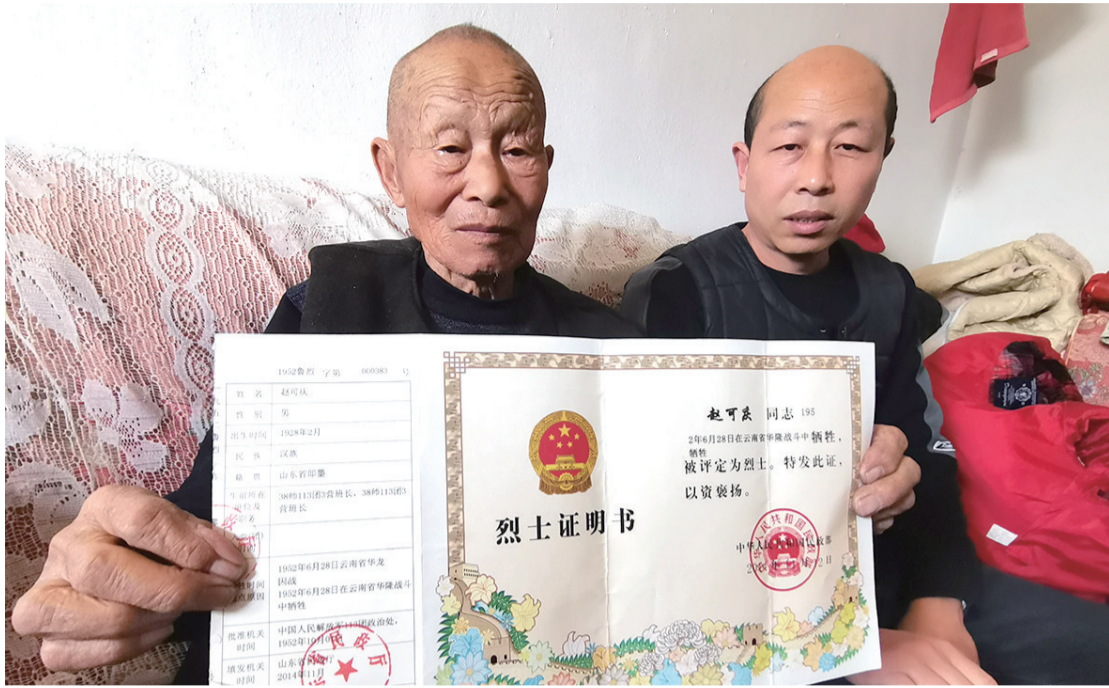 1952鲁烈 字第 000383 号
姓名 赵可庆
性别 男
出生时间 1928年2月
民族 汉族
籍贯 山东省即墨
生前所在
单位及
职务
38师113团3营班长，38师113团3
营班长
时间
1952年6月28日云南省华龙
因战
1952年6月28日在云南省华隆战斗
中牺牲
批准机关
时间
中国人民解放军113团政治处，
填发机关
时间
2014年11月
烈士证明书
赵可庆 同志 195
2年6月28日在云南省华隆战斗中牺牲，
牺牲
被评定为烈士。特发此证，
以资褒扬。
中华人民共和国民政部